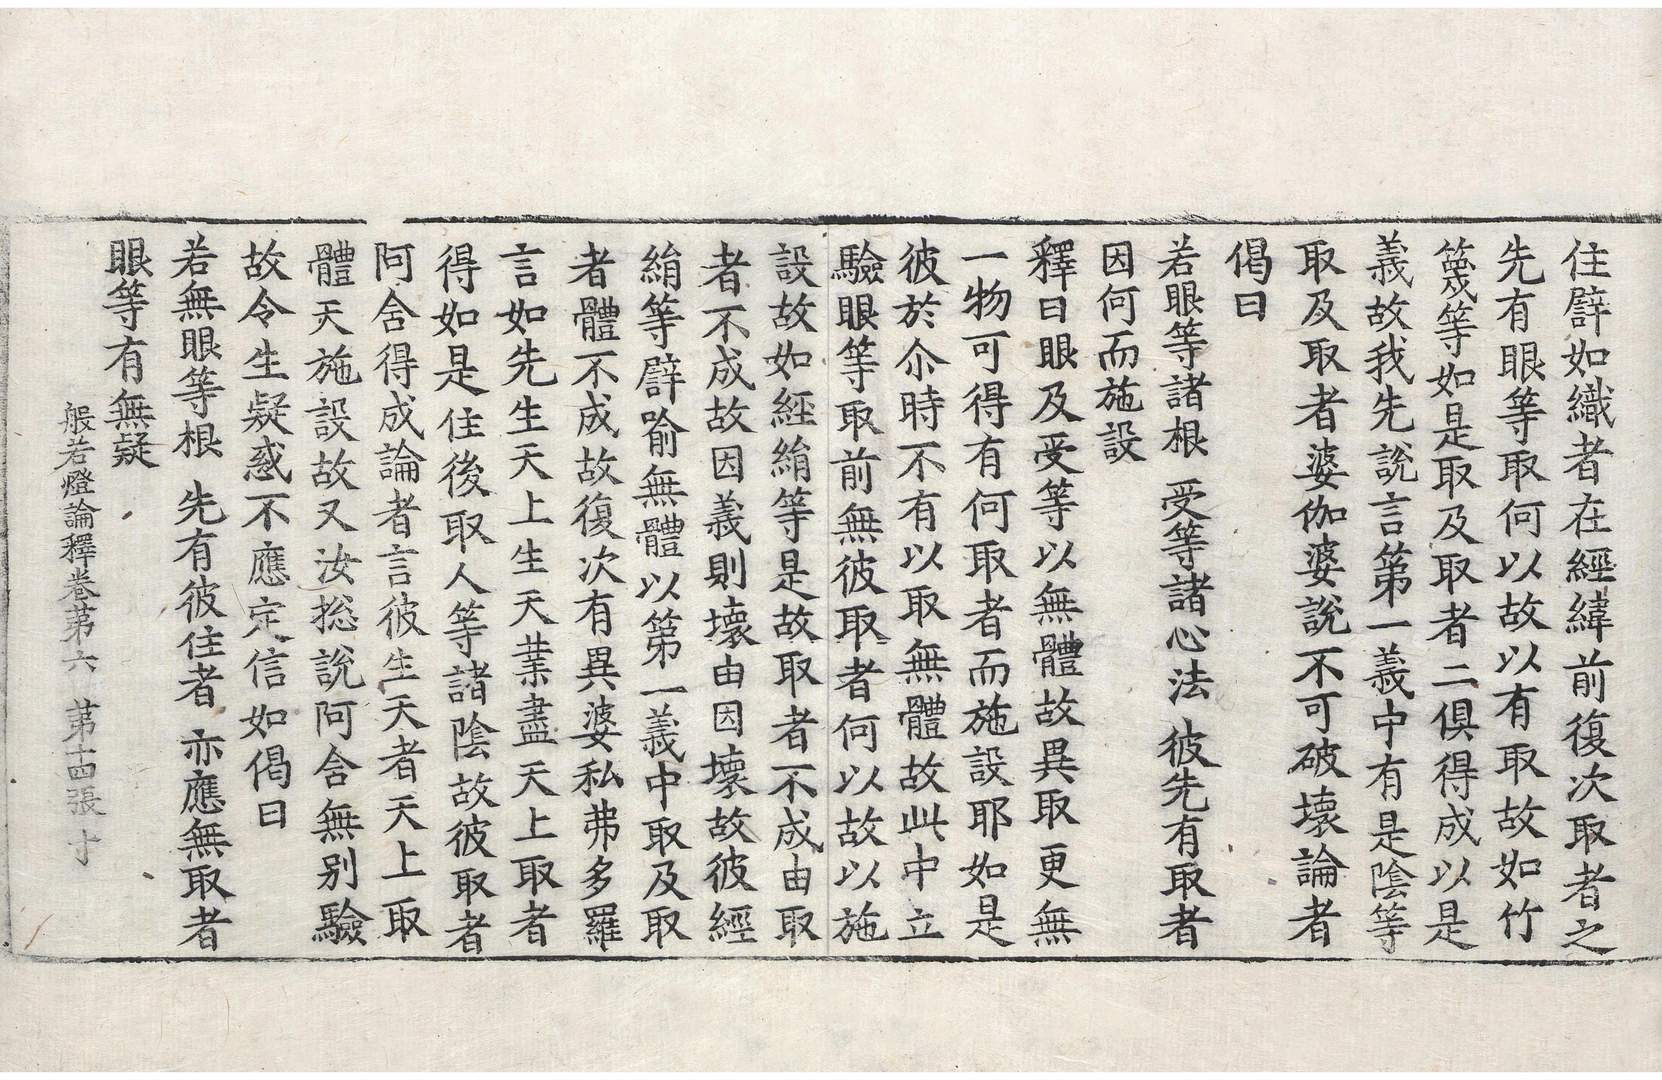 住譬如織者在經緯前復次取者之
先有眼等取何以故以有取故如竹
篾等如是取及取者二俱得成以是
義故我先說言第一義中有是陰等
取及取者婆伽婆說不可破壞論者
偈曰
若眼等諸根 受等諸心法 彼先有取者
因何而施設
釋曰眼及受等以無體故異取更無
一物可得有何取者而施設耶如是
彼於尒時不有以取無體故此中立
驗眼等取前無彼取者何以故以施
設故如經絹等是故取者不成由取
者不成故因義則壞由因壞故彼經
絹等譬喻無體以第一義中取及取
者體不成故復次有異婆私弗多羅
言如先生天上生天業盡天上取者
得如是住後取人等諸陰故彼取者
阿含得成論者言彼生天者天上取
體天施設故又汝捴說阿含無別驗
故令生疑惑不應定信如偈曰
若無眼等根 先有彼住者 亦應無取者
眼等有無疑
般若燈論釋卷苐六 苐十四張 寸